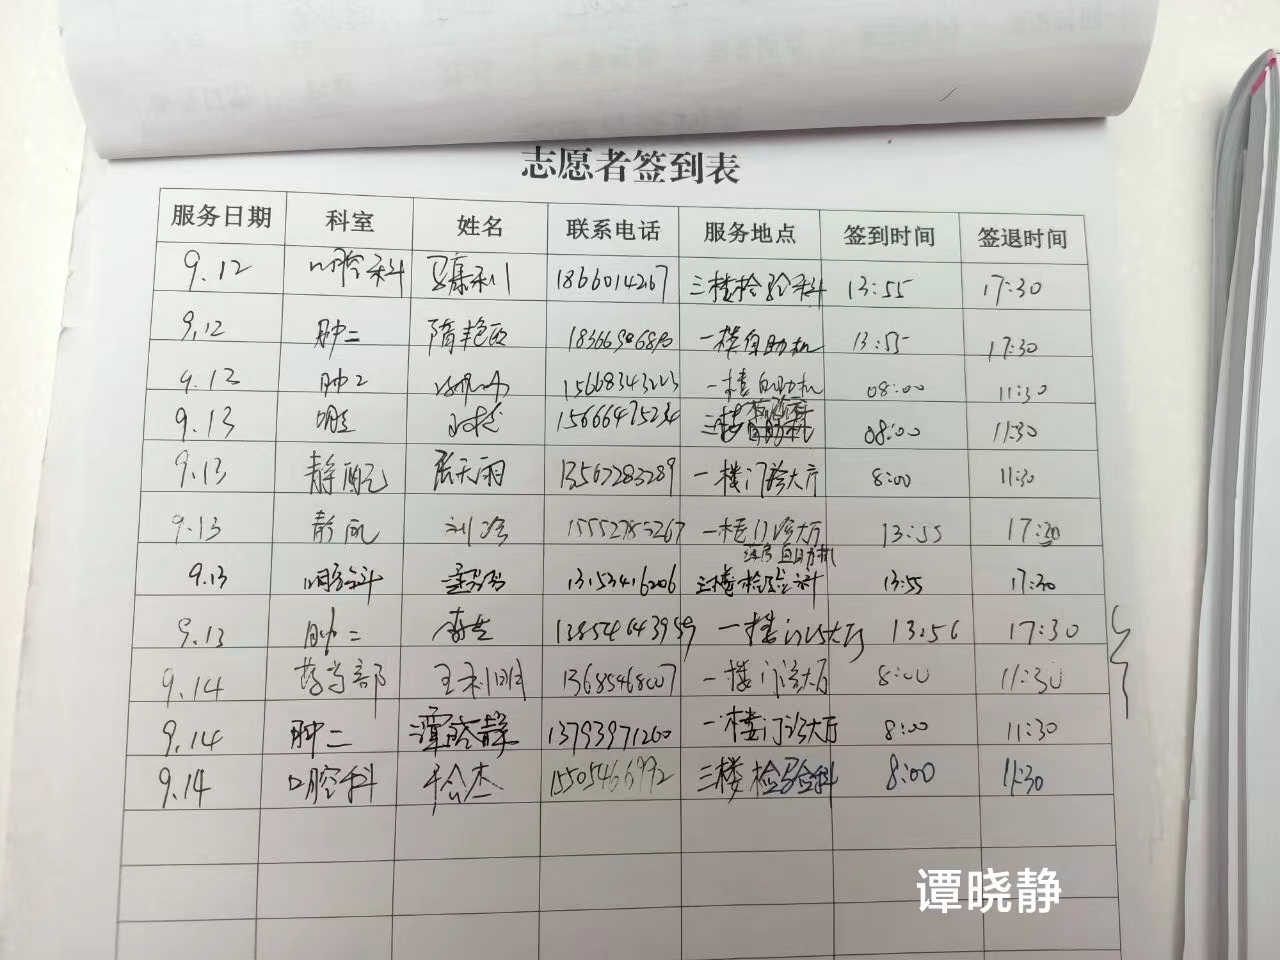 志愿者签到表
服务日期 科室 姓名 联系电话 服务地点 签到时间 签退时间
9.12 口腔科 马康利 1866014267 三楼检验科 13:55 17:30
9.12 肿二 隋艳 一楼自助机 13:55 17:30
9.12 肿2 15668343223 一楼自助机 08:00 11:30
9.13 15666475234 三楼 08:00 11:30
9.13 静配 张天雨 13562283289 一楼门诊大厅 8:00 11:30
9.13 静配 刘 15552785267 一楼门诊大厅 13:55 17:30
9.13 三楼检验科 自助机 13:55 17:30
9.13 肿二 13854643959 一楼门诊大厅 13:56 17:30
9.14 药学部 王利 13685468007 一楼门诊大厅 8:00 11:30
9.14 肿二 谭晓静 13793971260 一楼门诊大厅 8:00 11:30
9.14 口腔科 杰 15505466992 三楼检验科 8:00 11:30
谭晓静